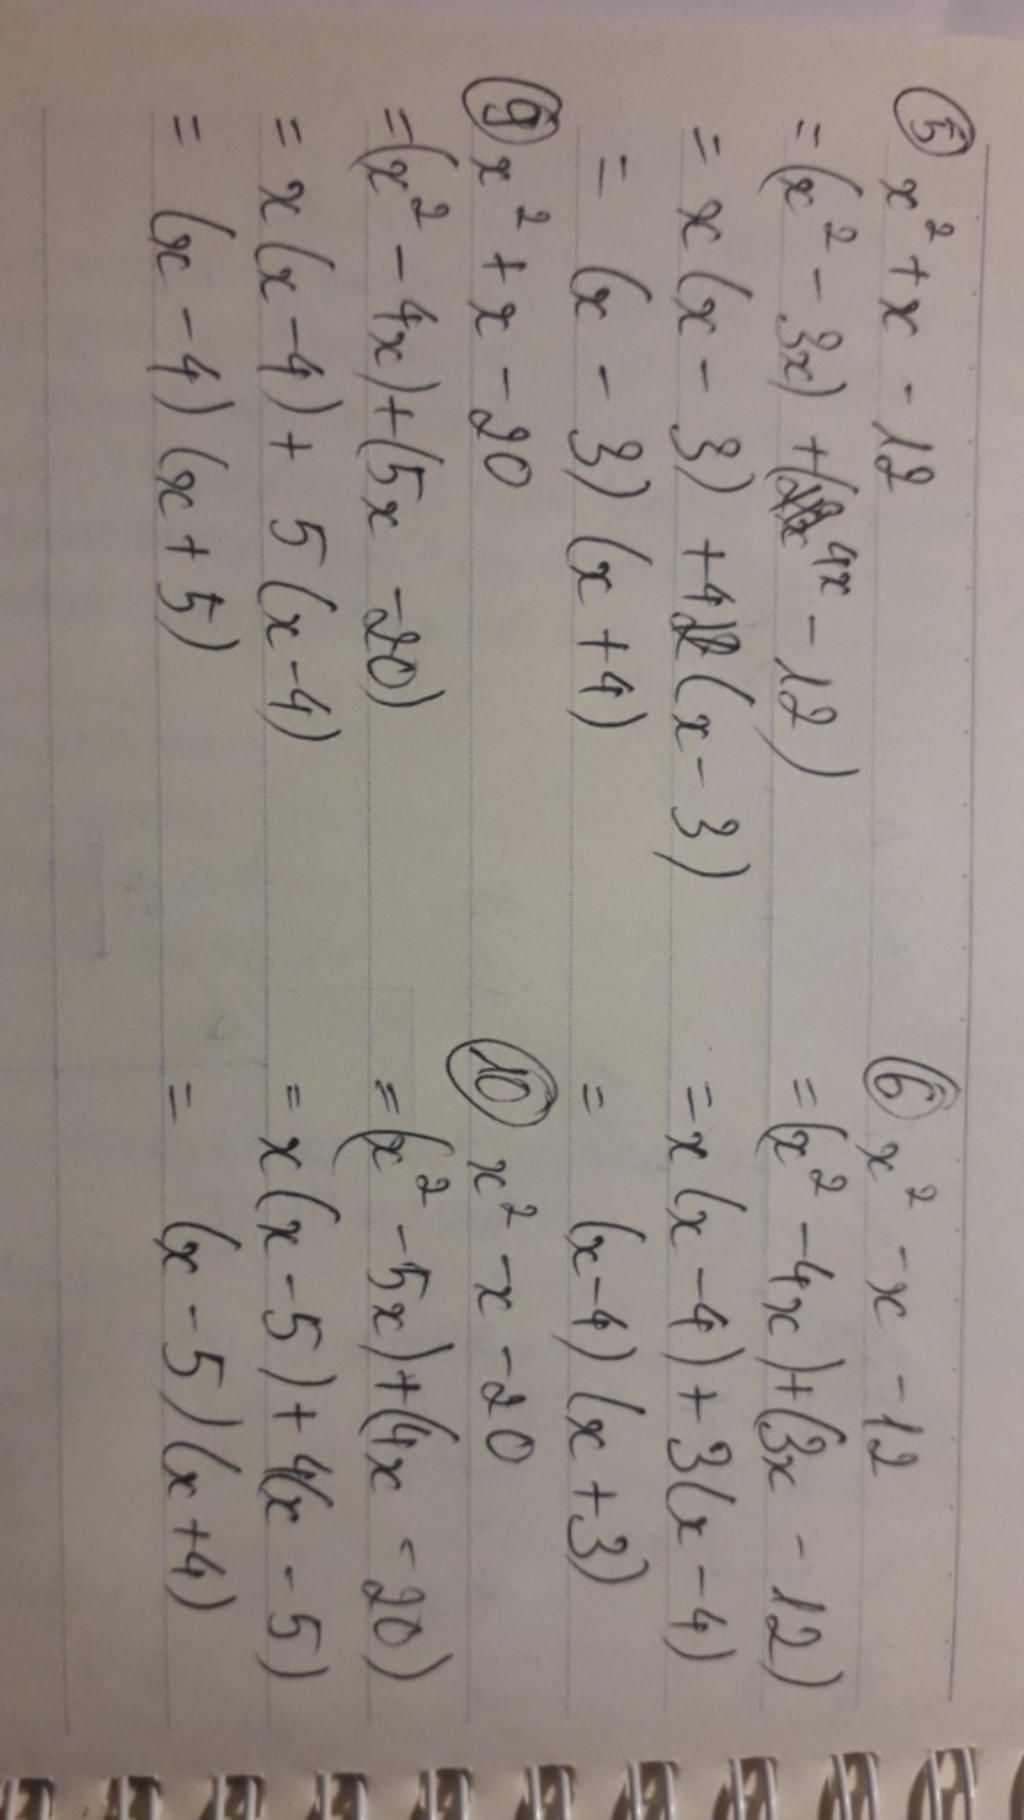 ⑤ x² + x - 12
= (x² - 3x) + (4x - 12)
= x(x - 3) + 4(x - 3)
= (x - 3)(x + 4)
⑥ x² - x - 12
= (x² - 4x) + (3x - 12)
= x(x - 4) + 3(x - 4)
= (x - 4)(x + 3)
⑨ x² + x - 20
= (x² - 4x) + (5x - 20)
= x(x - 4) + 5(x - 4)
= (x - 4)(x + 5)
⑩ x² - x - 20
= (x² - 5x) + (4x - 20)
= x(x - 5) + 4(x - 5)
= (x - 5)(x + 4)